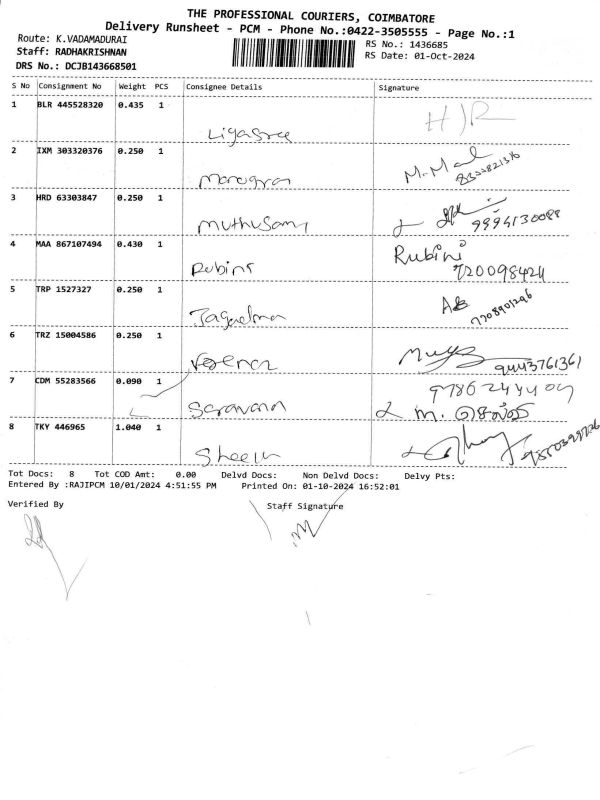 THE PROFESSIONAL COURIERS, COIMBATORE
Delivery Runsheet - PCM - Phone No.:0422-3505555 - Page No.:1
Route: K.VADAMADURAI
RS No.: 1436685
Staff: RADHAKRISHNAN
RS Date: 01-Oct-2024
DRS No.: DCJB143668501
S No Consignment No Weight PCS Consignee Details Signature
1 BLR 445528320 0.435 1
2 IXM 303320376 0.250 1
3 HRD 63303847 0.250 1 Muthusamy
4 MAA 867107494 0.430 1 Rubini Rubini
7200984211
5 TRP 1527327 0.250 1
7708901296
6 TRZ 15004586 0.250 1
9443761361
7 CDM 55283566 0.090 1 Saravana
8 TKY 446965 1.040 1
Tot Docs: 8 Tot COD Amt: 0.00 Delvd Docs: Non Delvd Docs: Delvy Pts:
Entered By :RAJIPCM 10/01/2024 4:51:55 PM Printed On: 01-10-2024 16:52:01
Verified By Staff Signature